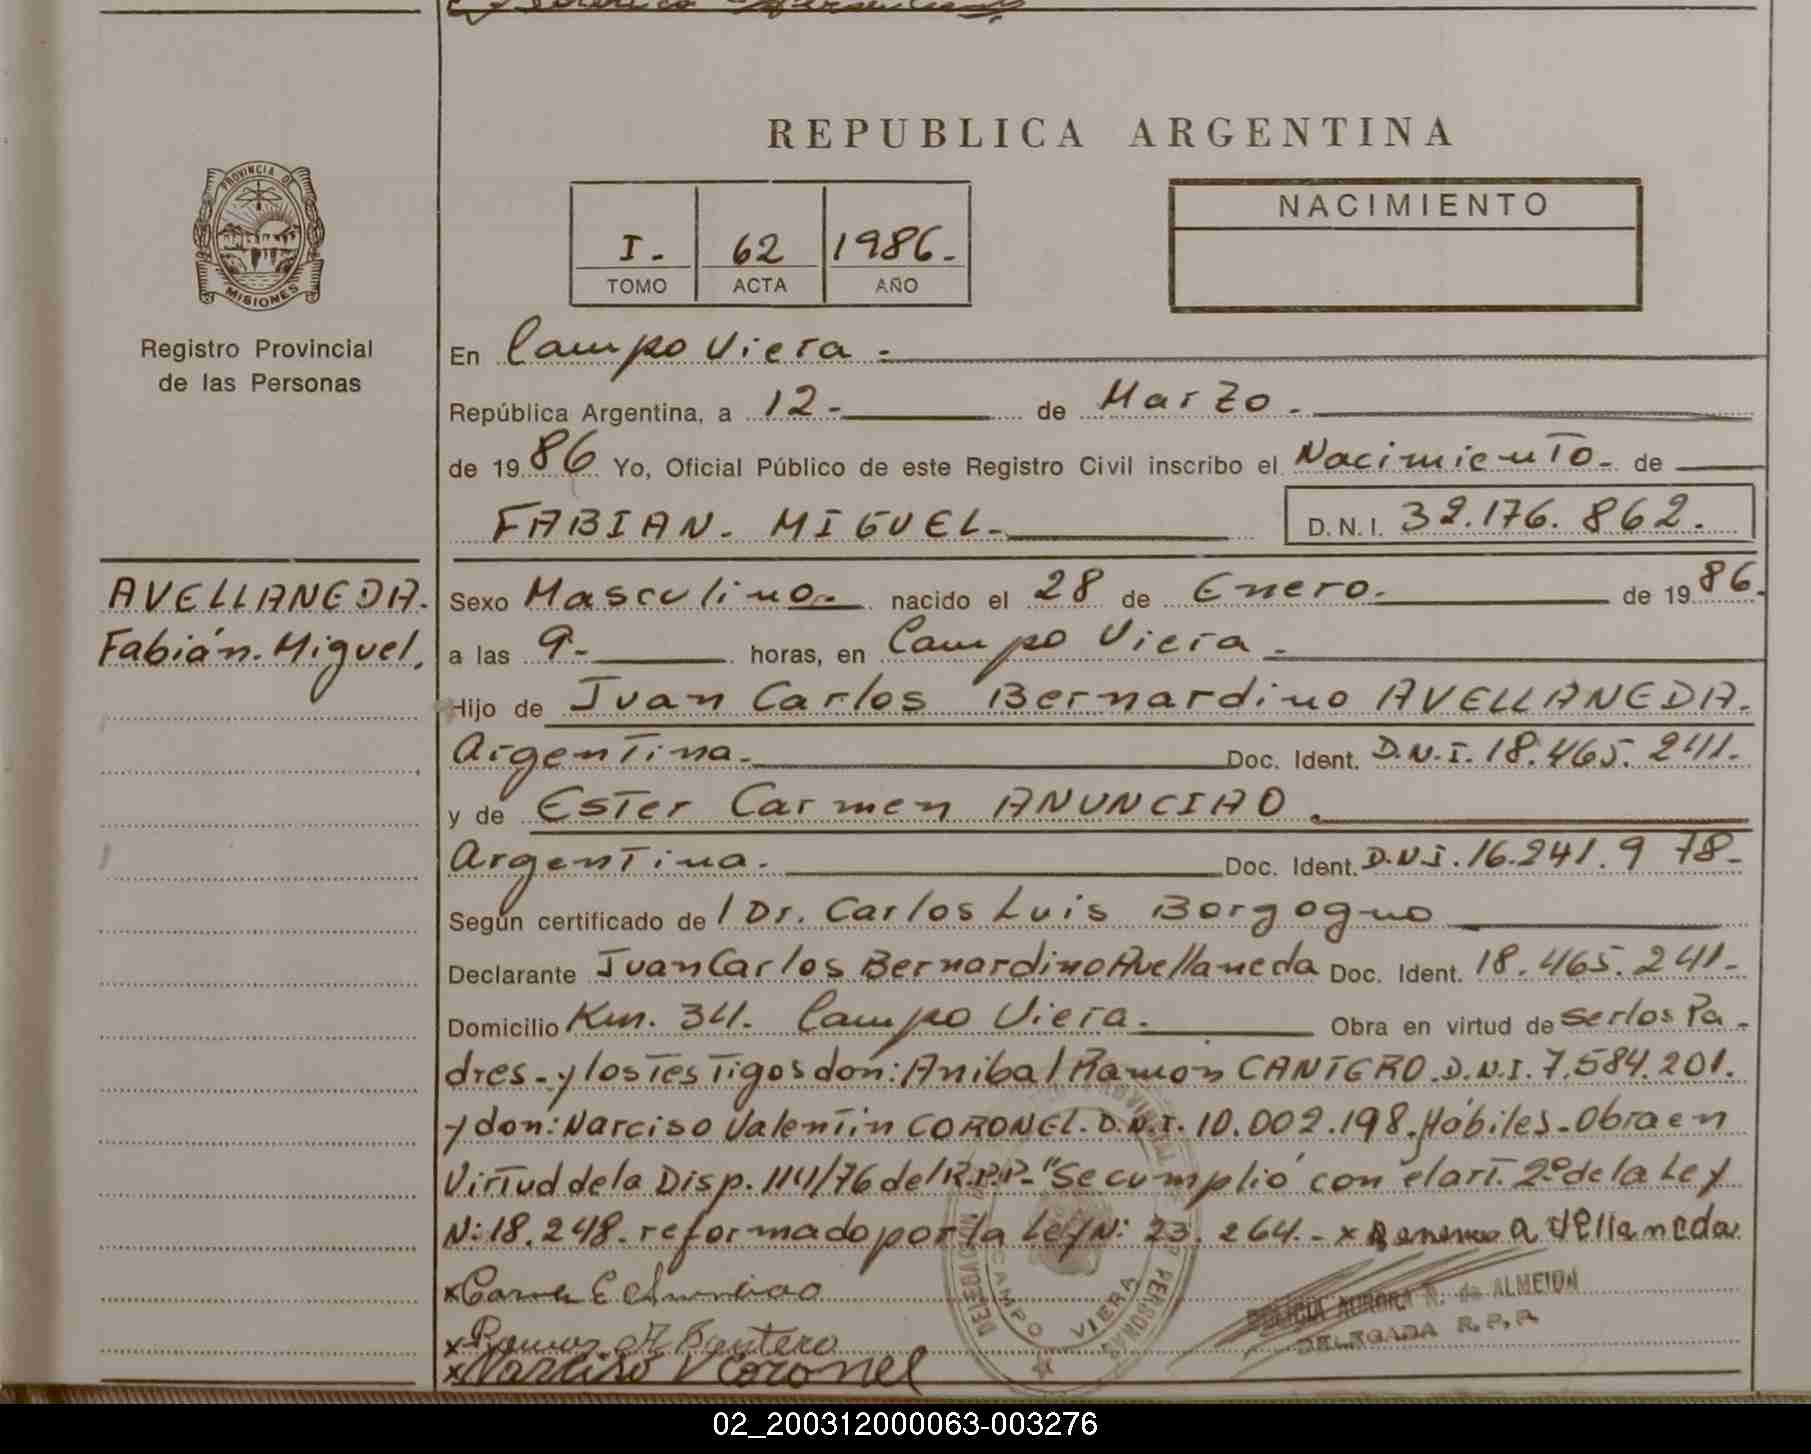 REPUBLICA ARGENTINA
PROVINCIA DE
MISIONES
Registro Provincial
de las Personas
I. 62 1986.
TOMO ACTA AÑO
NACIMIENTO
En Campo Viera.
República Argentina, a 12- de Marzo.
de 1986 Yo, Oficial Público de este Registro Civil inscribo el Nacimiento- de
FABIAN. MIGUEL- D.N.I. 32.176.862.
AVELLANEDA.
Fabián. Miguel.
Sexo Masculino.- nacido el 28 de Enero. de 1986.
a las 9.- horas, en Campo Viera.
Hijo de Juan Carlos Bernardino AVELLANEDA.
Argentina. Doc. Ident. D.N.I. 18.465.241.
y de Ester Carmen ANUNCIAO.
Argentina. Doc. Ident. D.N.I. 16.241.978-
Según certificado de / Dr. Carlos Luis Borgogno
Declarante Juan Carlos Bernardino Avellaneda Doc. Ident. 18.465.241-
Domicilio Km. 34. Campo Viera. Obra en virtud de ser los Pa-
dres- y los Testigos don: Anibal Ramon CANTERO. D.N.I. 7.584.201.
y don: Narciso Valentin CORONEL. D.N.I. 10.002.198. Hábiles- Obra en
Virtud de la Disp. 114/76 del R.P.P.- "Se cumplió con el art. 2º de la Ley
N: 18.248. reformado por la Ley N: 23.264.- x Avellaneda
x Carmen E Anunciao
x Ramon A Cantero
x Narciso V Coronel
DELEGACION
CAMPO VIERA
PERSONAS
AURORA R. de ALMEIDA
DELEGADA R.P.P.
02_200312000063-003276